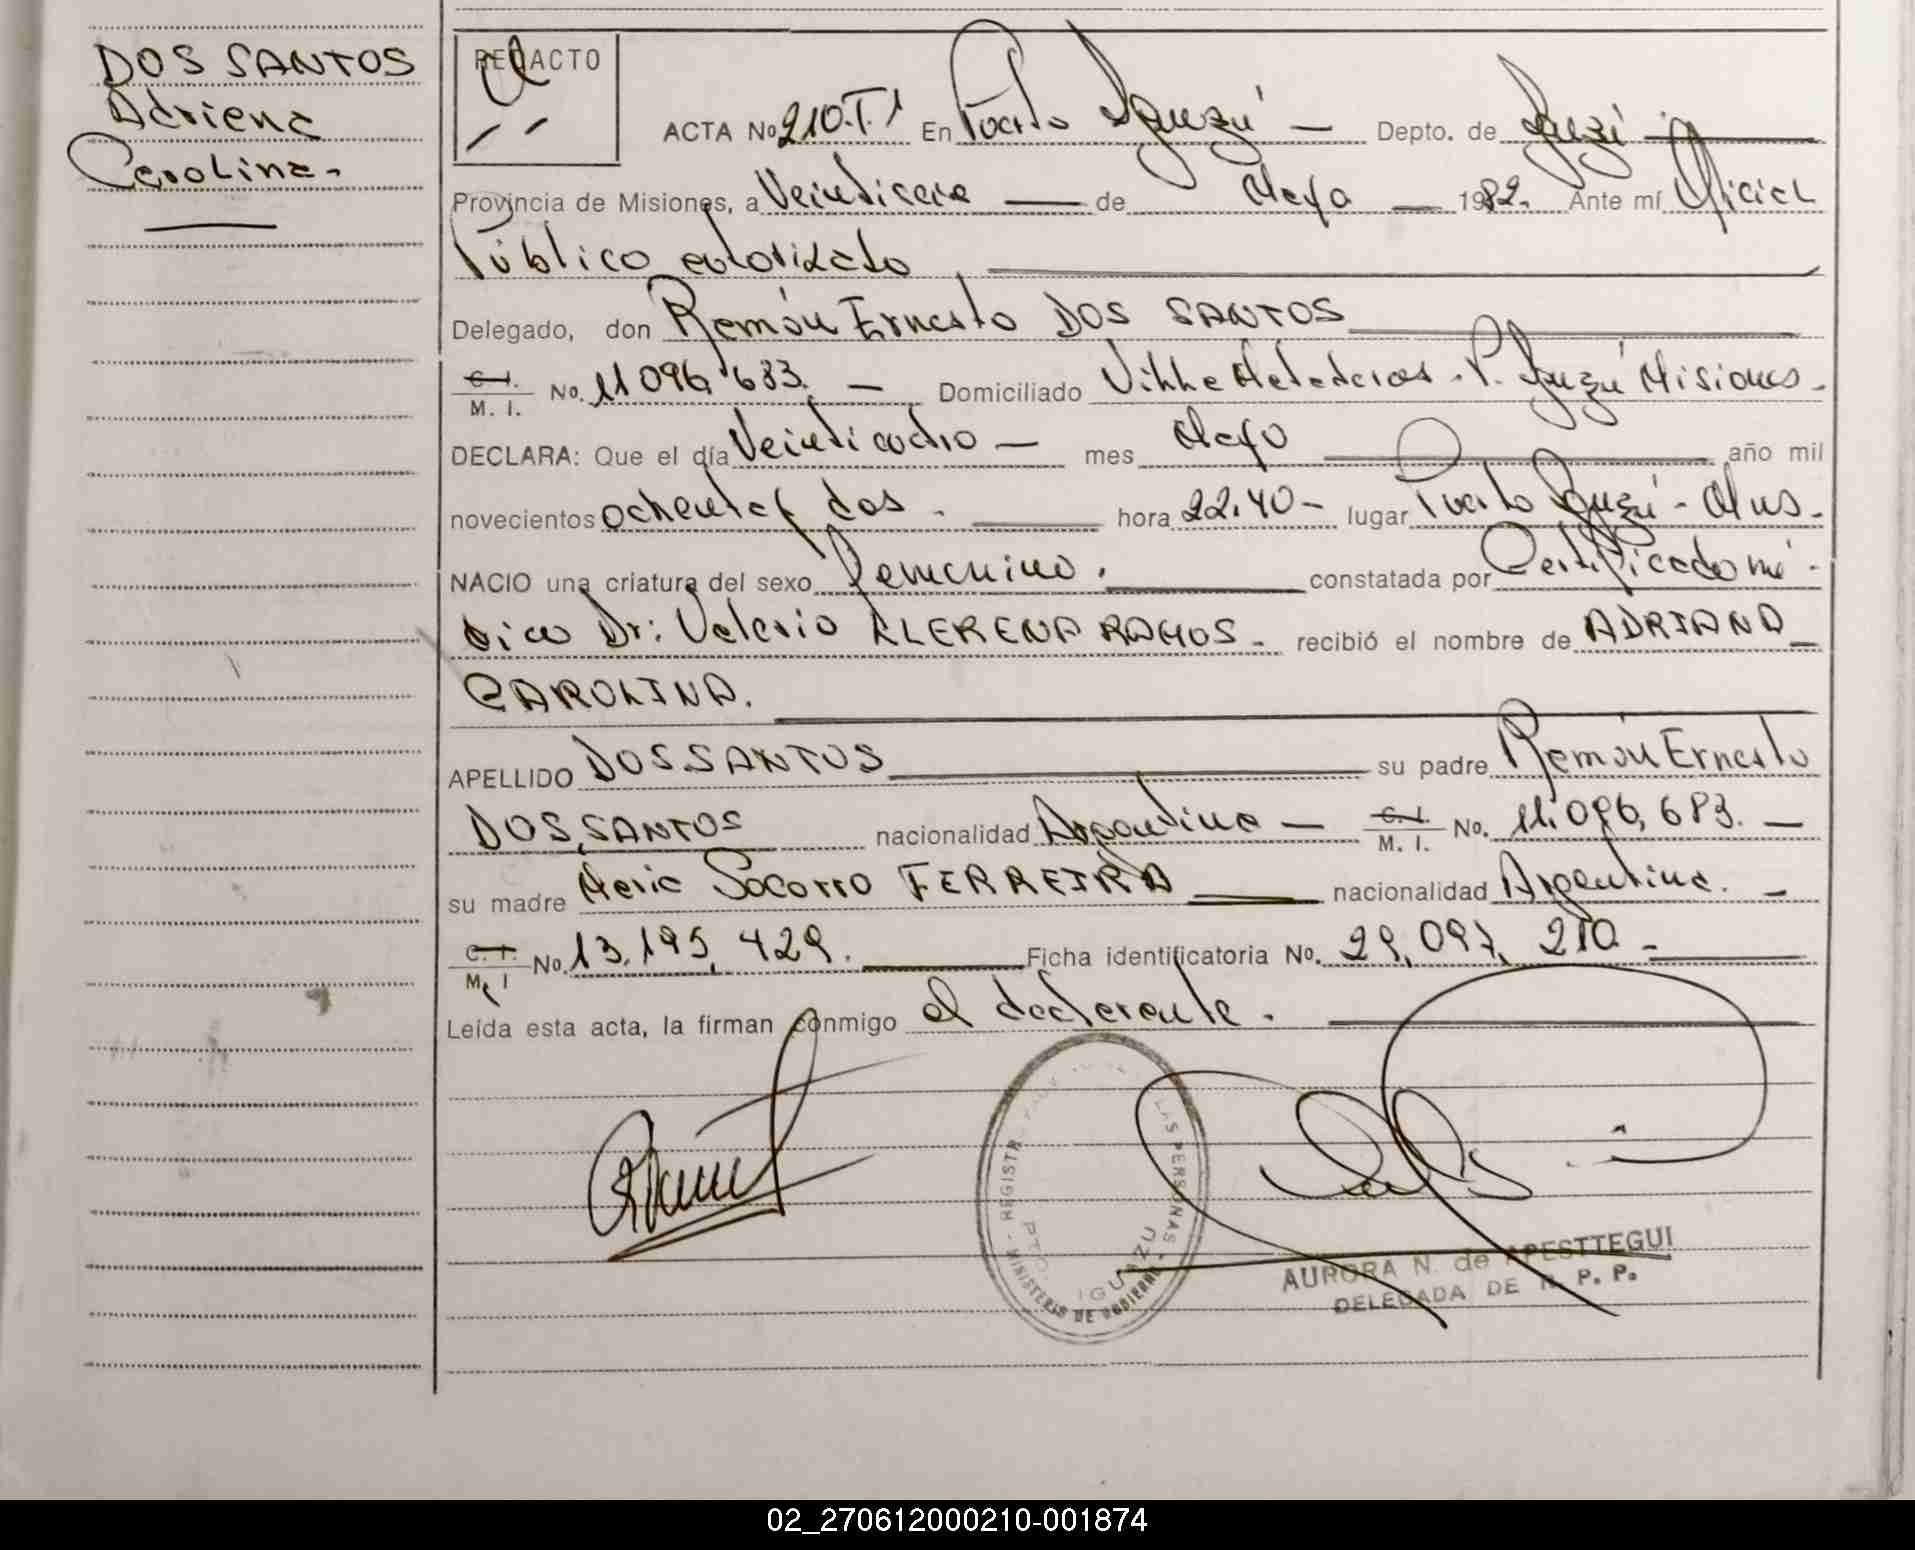 DOS SANTOS
Adriana
Carolina.-
REDACTO
ACTA No 210.T.1 En Puerto Iguazú — Depto. de Iguazú
Provincia de Misiones, a Veintiseis — de Mayo — 1982. Ante mí Oficial
Público autorizado
Delegado, don Ramón Ernesto DOS SANTOS
C. I. M. I. No. 11.096.683. — Domiciliado Villa Alta P. Iguazú Misiones.
DECLARA: Que el día Veinticuatro — mes Mayo año mil
novecientos ochenta y dos. hora 22.40 - lugar Puerto Iguazú - Mnes.
NACIO una criatura del sexo femenino. constatada por Certificado mé-
dico Dr: Valerio LLERENA RAMOS. recibió el nombre de ADRIANA
CAROLINA.
APELLIDO DOS SANTOS su padre Ramón Ernesto
DOS SANTOS nacionalidad Argentina — C. I. M. I. No. 11.096.683. —
su madre Maria Socorro FERREIRA nacionalidad Argentina. -
C. I. M. I No. 13.195.429. Ficha identificatoria No. 29.097.210 -
Leída esta acta, la firman conmigo el declarante.
REGISTR LAS PERSONAS - MINISTERIO DE GOBIERNO
PTO. IGUAZU
AURORA N. de APESTTEGUI
DELEGADA DE R. P. P.
02_270612000210-001874